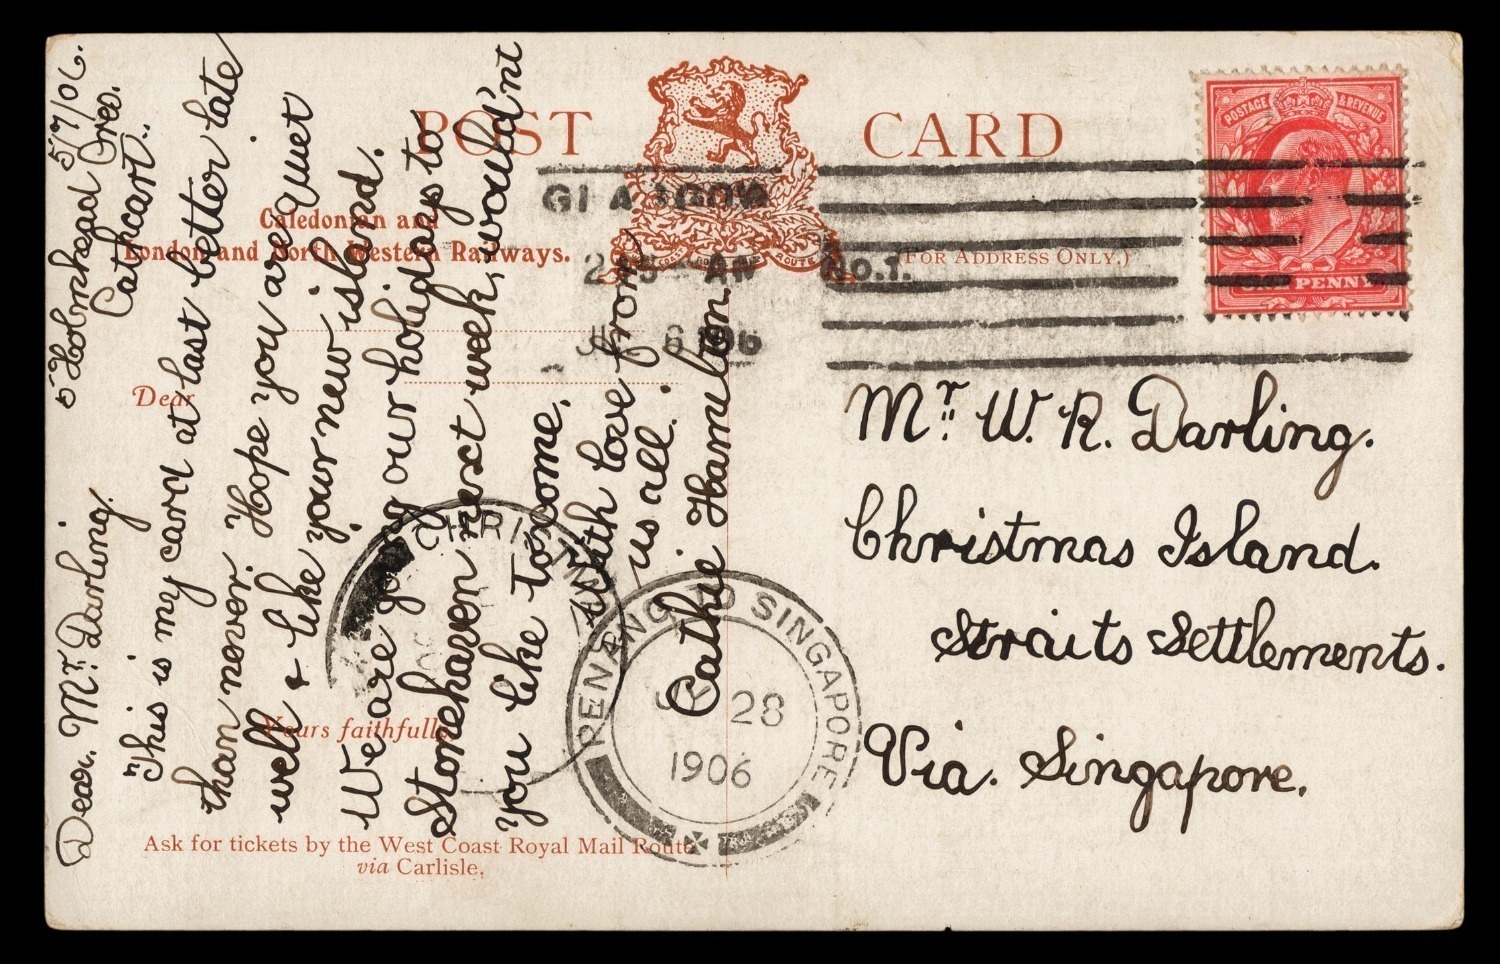 POST CARD
Caledonian and
London and North Western Railways.
(FOR ADDRESS ONLY.)
Dear
Yours faithfully,
Ask for tickets by the West Coast Royal Mail Route
via Carlisle.
POSTAGE & REVENUE
ONE PENNY
GLASGOW
AM No.1.
6 1906
CHRISTMA
PENANG TO SINGAPORE
28
1906
5/7/06.
5 Holmhead Cres.
Cathcart.
Dear Mr. Darling.
This is my card at last better late
than never. Hope you are quiet
well & like your new island.
We are going our holidays to
Stonehaven next week, would'nt
you like to come,
With love from
us all.
Cathie Hamilton.
Mr. W. R. Darling.
Christmas Island.
Straits Settlements.
Via. Singapore.